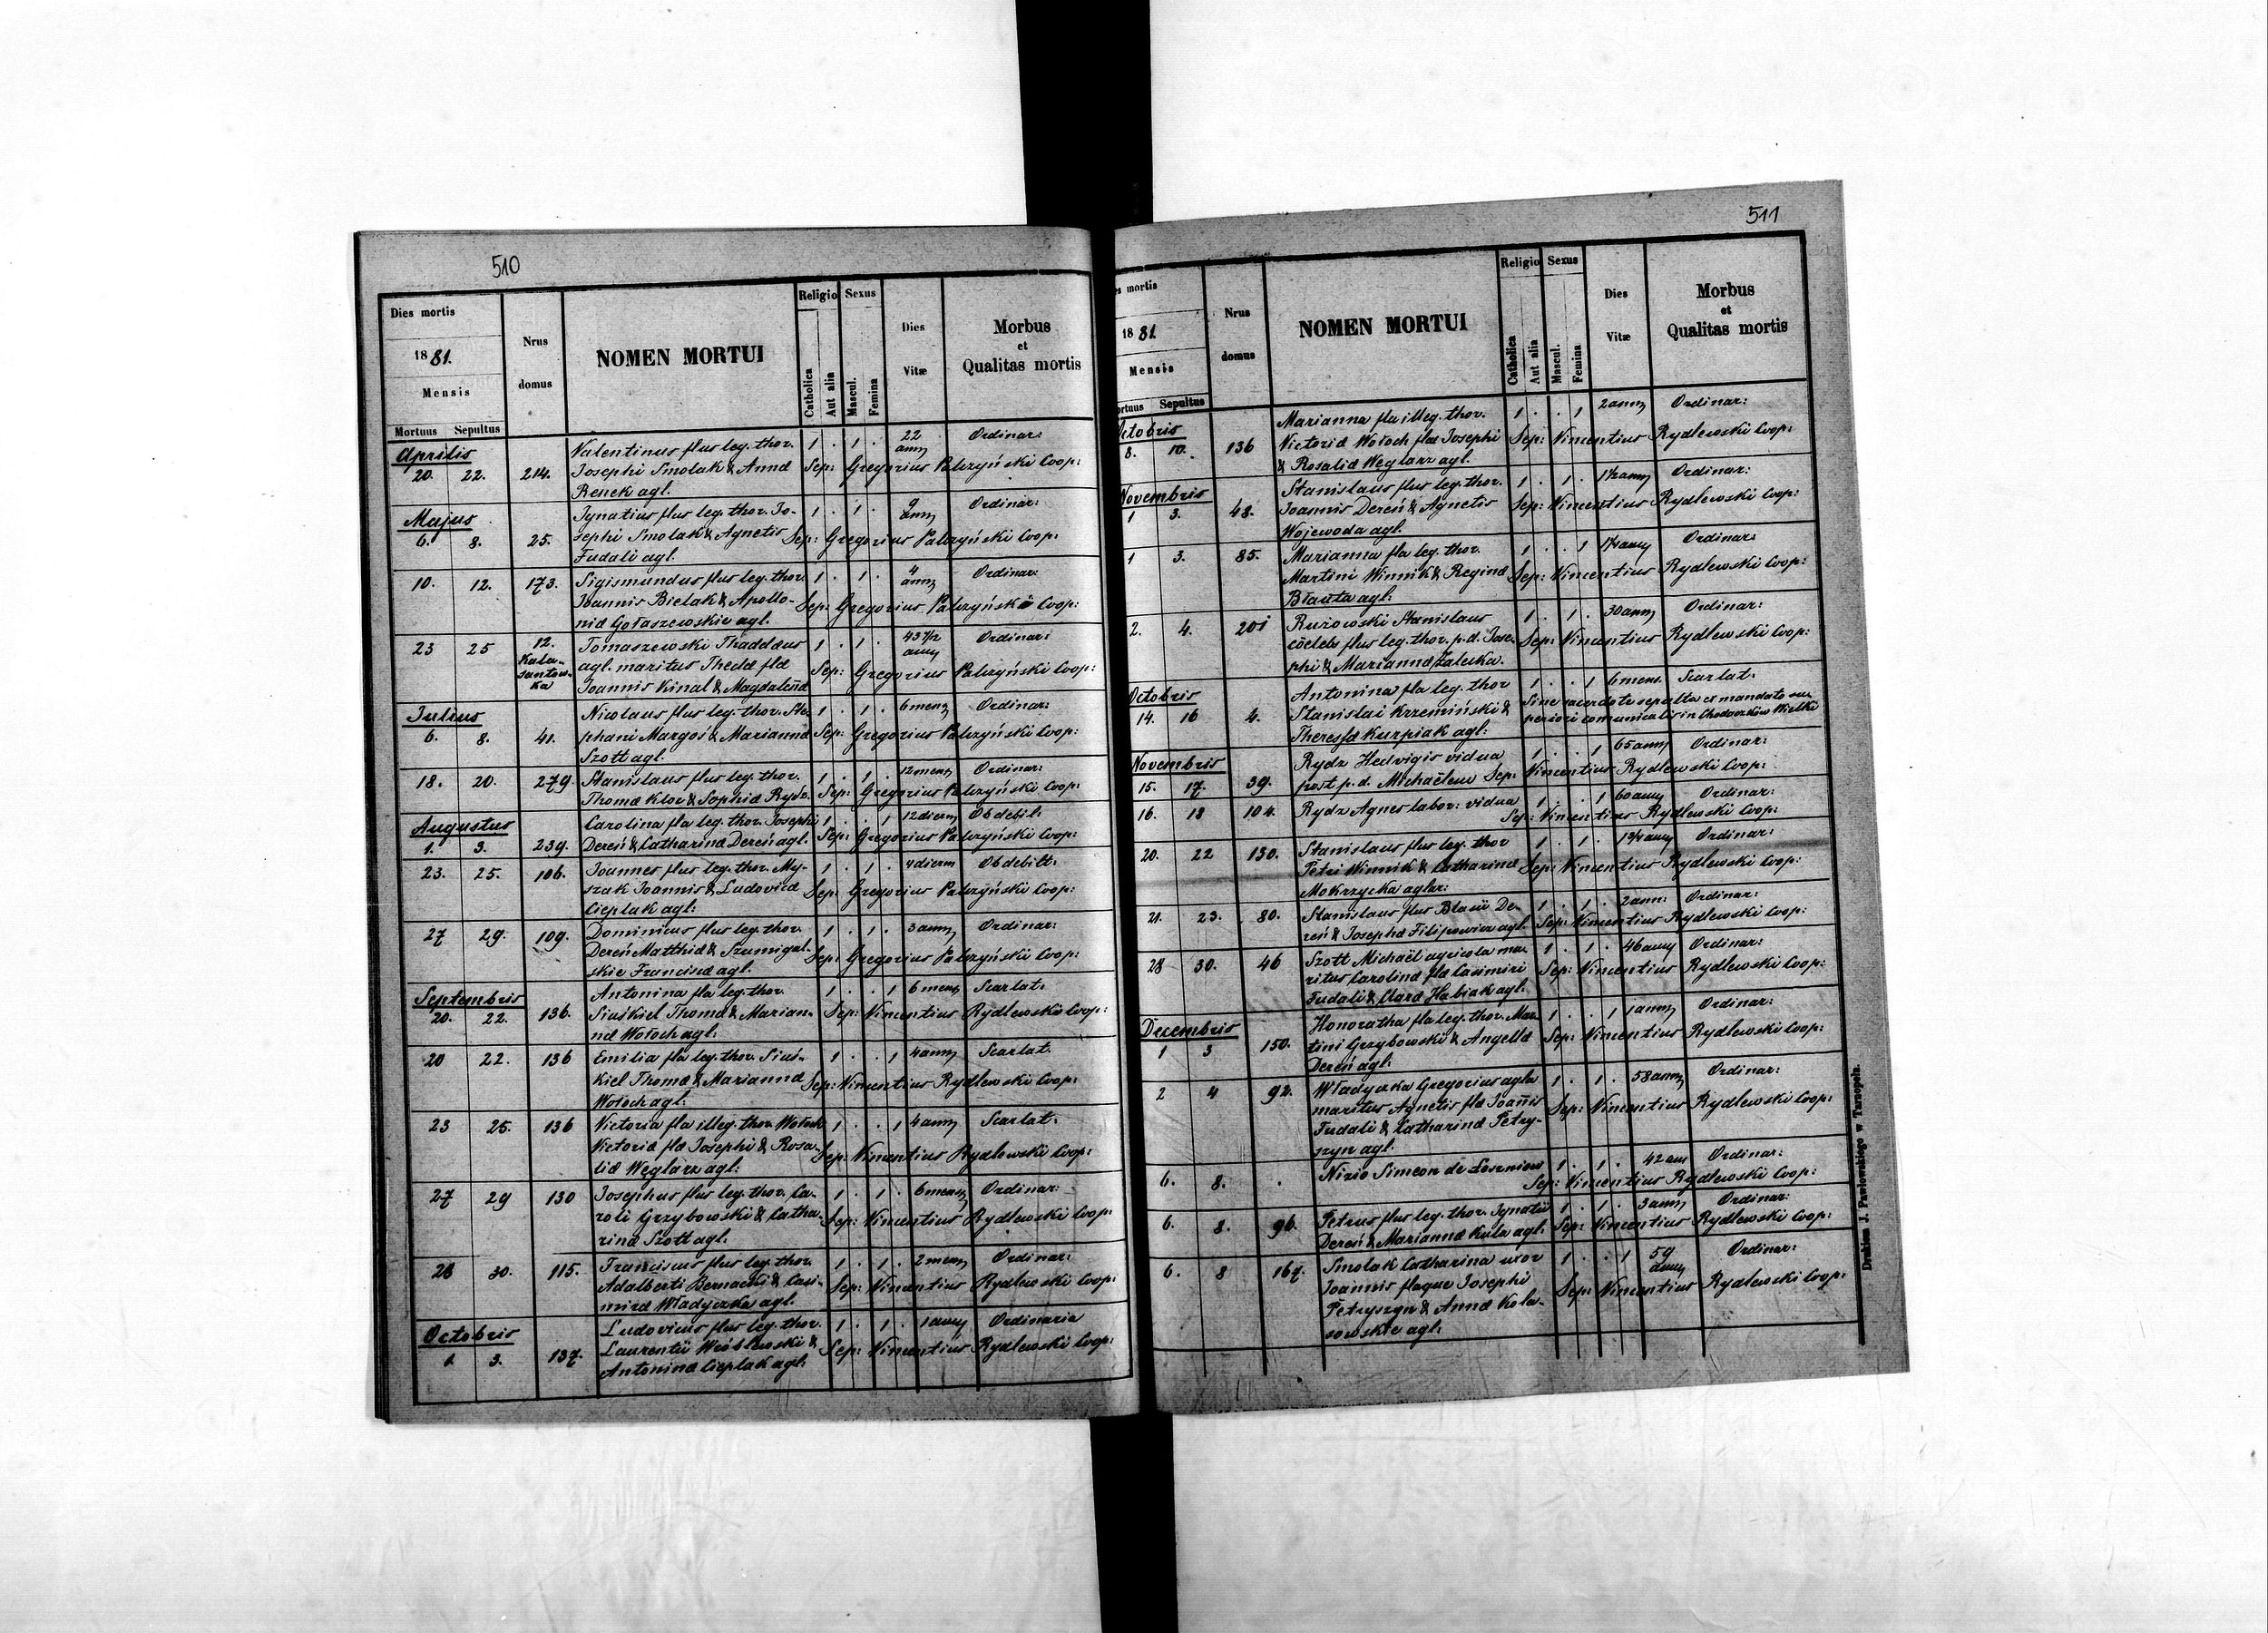 510
Dies mortis
1881.
Mensis
Mortuus Sepultus
Nrus
domus
NOMEN MORTUI
Religio
Catholica
Aut alia
Sexus
Mascul.
Femina
Dies
Vitæ
Morbus
et
Qualitas mortis
Aprilis
20. 22. 214.
Valentinus flus leg. thor.
Josephi Smolak & Annæ
Renek agl.
1 . 1 . 22 anny Ordinar:
Sep: Gregorius Palczyński Coop:
Majus
6. 8. 25.
Ignatius flus leg. thor. Jo-
sephi Smolak & Agnetis
Fudali agl.
1 . 1 . 9 anny Ordinar:
Sep: Gregorius Palczyński Coop:
10. 12. 173.
Sigismundus flus leg. thor.
Joannis Bielak & Apollo-
niæ Gołaszewskie agl.
1 . 1 . 4 anny Ordinar:
Sep: Gregorius Palczyński Coop:
23 25 12.
Kala-
santow-
ka
Tomaszewski Thaddæus
agl. maritus Theclæ flæ
Joannis Kinal & Magdalenæ
1 . 1 . 43 7/12 anny Ordinar:
Sep: Gregorius Palczyński Coop:
Julius
6. 8. 41.
Nicolaus flus leg. thor. Ste-
phani Margos & Mariannæ
Szott agl.
1 . 1 . 6 mens Ordinar:
Sep: Gregorius Palczyński Coop:
18. 20. 279
Stanislaus flus leg. thor.
Thomæ Kloc & Sophiæ Rydz.
1 . 1 . 12 mens Ordinar:
Sep: Gregorius Palczyński Coop:
Augustus
1. 3. 239.
Carolina fla leg. thor. Josephi
Dereń & Catharinæ Dereń agl.
1 . . 1 12 dierm Ob debil:
Sep: Gregorius Palczyński Coop:
23. 25. 106.
Joannes flus leg. thor. My-
szak Joannis & Ludovicæ
Cieplak agl:
1 . 1 . 4 dierm Ob debilt:
Sep: Gregorius Palczyński Coop:
27 29. 109.
Dominicus flus leg. thor.
Dereń Matthiæ & Szumigal-
skie Franciscæ agl.
1 . 1 . 3 anny Ordinar:
Sep: Gregorius Palczyński Coop:
Septembris
20. 22. 136.
Antonina fla leg. thor.
Siuśkiel Thomæ & Marian-
næ Wołoch agl:
1 . . 1 6 mens Scarlat:
Sep: Vincentius Rydlewski Coop:
20 22. 136
Emilia fla leg. thor. Siuś-
kiel Thomæ & Mariannæ
Wołoch agl:
1 . . 1 4 anny Scarlat.
Sep: Vincentius Rydlewski Coop:
23 25. 136
Victoria fla illeg. thor. Wołoch
Victoriæ flæ Josephi & Rosa-
liæ Węglarz agl:
1 . . 1 4 anny Scarlat.
Sep: Vincentius Rydlewski Coop:
27 29 130
Josephus flus leg. thor. Ca-
roli Grzybowski & Catha-
rinæ Szott agl.
1 . 1 . 6 mens Ordinar:
Sep: Vincentius Rydlewski Coop:
28 30. 115.
Franciscus flus leg. thor.
Adalberti Bernacki & Casi-
miræ Władyczka agl.
1 . 1 . 2 mens Ordinar:
Sep: Vincentius Rydlewski Coop:
Octobris
1. 3. 137.
Ludovicus flus leg. thor.
Laurentii Wróblewski &
Antoninæ Cieplak agl:
1 . 1 . 1 anny Ordinaria
Sep: Vincentius Rydlewski Coop:
511
es mortis
1881.
Mensis
ortuus Sepultus
Nrus
domus
NOMEN MORTUI
Religio
Catholica
Aut alia
Sexus
Mascul.
Femina
Dies
Vitæ
Morbus
et
Qualitas mortis
Octobris
8. 10. 136
Marianna fla illeg. thor.
Victoriæ Wołoch flæ Josephi
& Rosaliæ Węglarz agl.
1 . . 1 2 anny Ordinar:
Sep: Vincentius Rydlewski Coop:
Novembris
1 3. 48.
Stanislaus flus leg. thor.
Joannis Dereń & Agnetis
Wojewoda agl.
1 . 1 . 1 1/2 anny Ordinar:
Sep: Vincentius Rydlewski Coop:
1 3. 85.
Marianna fla leg. thor.
Martini Winnik & Reginæ
Błauta agl:
1 . . 1 1 1/4 anny Ordinar:
Sep: Vincentius Rydlewski Coop:
2. 4. 201
Rużowski Stanislaus
cœlebs flus leg. thor. p. d. Jose-
phi & Mariannæ Zaleska.
1 . 1 . 30 anny Ordinar:
Sep: Vincentius Rydlewski Coop:
Octobris
14. 16 4.
Antonina fla leg. thor
Stanislai Krzemiński &
Theresæ Kurpiak agl:
1 . . 1 6 mens. Scarlat:
Sine sacerdote sepulta ex mandato su-
periori comunicatis in Chodaczków Wielki
Novembris
15. 17. 39.
Rydz Hedvigis vidua
post p. d. Michaëlem
1 . . 1 65 anny Ordinar:
Sep: Vincentius Rydlewski Coop:
16. 18 104.
Rydz Agnes labor: vidua
1 . . 1 60 anny Ordinar:
Sep: Vincentius Rydlewski Coop:
20. 22 130.
Stanislaus flus leg. thor
Petri Winnik & Catharinæ
Mokrzycka aglar:
1 . 1 . 1 3/4 anny Ordinar:
Sep: Vincentius Rydlewski Coop:
21. 23. 80.
Stanislaus flus Blasii De-
reń & Josephæ Filipowicz agl.
1 . 1 . 2 ann: Ordinar:
Sep: Vincentius Rydlewski Coop:
28 30. 46
Szott Michaël agricola ma-
ritus Carolinæ flæ Casimiri
Fudali & Claræ Habiak agl:
1 . 1 . 46 anny Ordinar:
Sep: Vincentius Rydlewski Coop:
Decembris
1 3 150.
Honoratha fla leg. thor. Mar-
tini Grzybowski & Angellæ
Dereń agl:
1 . . 1 1 anny Ordinar:
Sep: Vincentius Rydlewski Coop:
2 4 92.
Władyczka Gregorius agla
maritus Agnetis flæ Joannis
Fudali & Catharinæ Petry-
szyn agl:
1 . 1 . 58 anny Ordinar:
Sep: Vincentius Rydlewski Coop:
6. 8. .
Nizio Simeon de Łoszniów
1 . 1 . 42 ann Ordinar:
Sep: Vincentius Rydlewski Coop:
6. 8. 96.
Petrus flus leg. thor. Ignatii
Dereń & Mariannæ Kula agl.
1 . 1 . 3 anny Ordinar:
Sep: Vincentius Rydlewski Coop:
6. 8 167.
Smolak Catharina uxor
Joannis flaque Josephi
Petryszyn & Annæ Kola-
sowskie agl:
1 . . 1 59 anny Ordinar:
Sep: Vincentius Rydlewski Coop:
Drukiem J. Pawłowskiego w Tarnopolu.